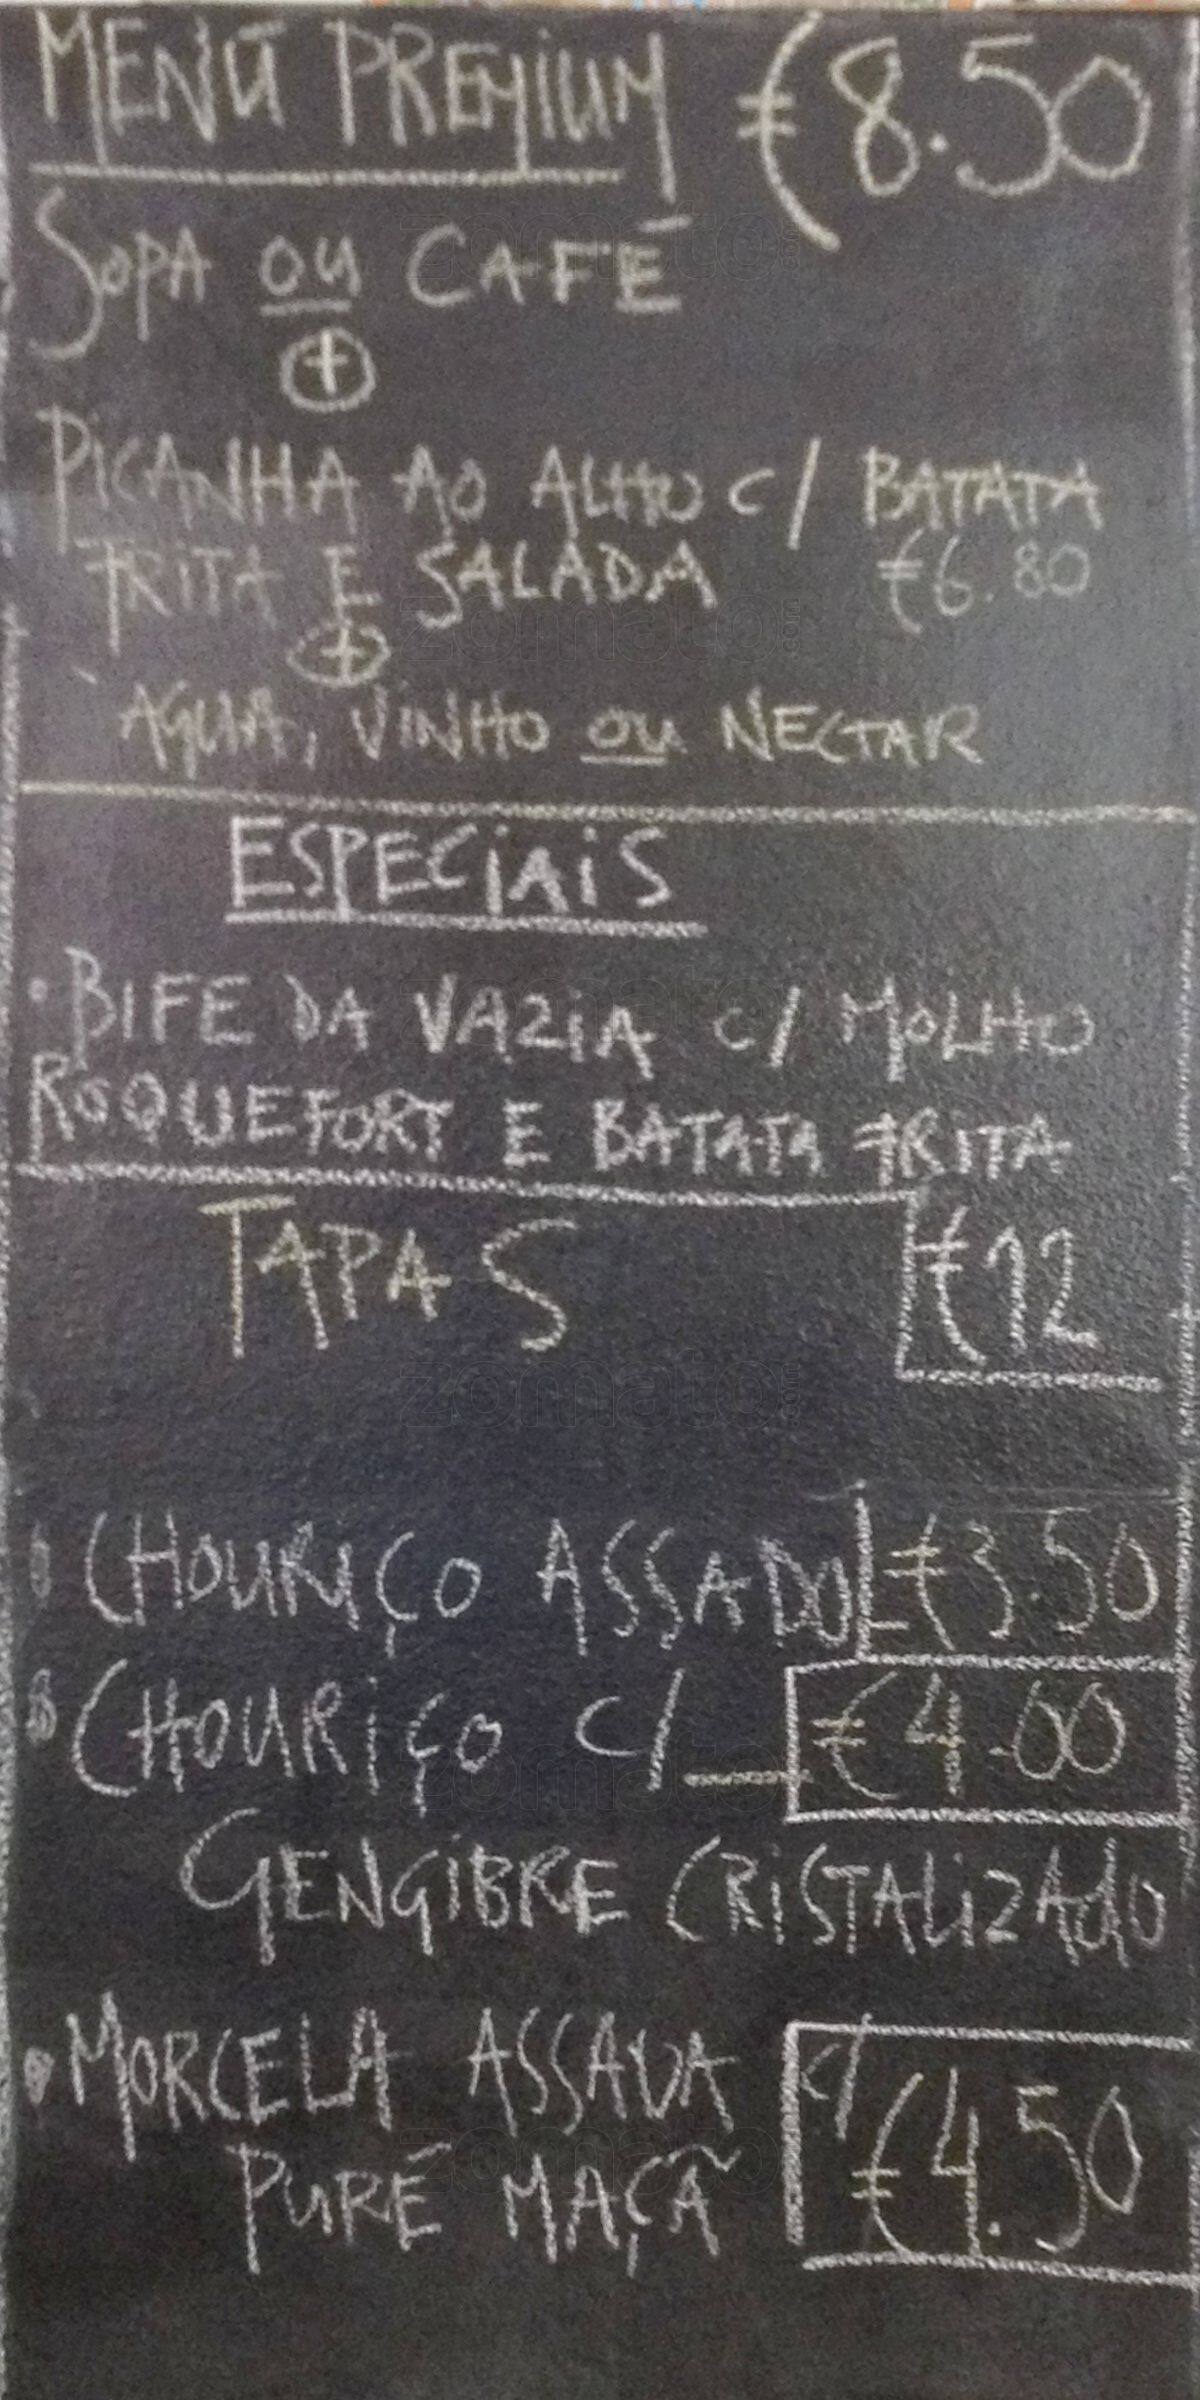 MENU PREMIUM €8.50
SOPA OU CAFÉ
+
PICANHA AO ALHO C/ BATATA
FRITA E SALADA €6.80
+
ÁGUA, VINHO OU NECTAR
ESPECIAIS
• BIFE DA VAZIA C/ MOLHO
ROQUEFORT E BATATA FRITA
TAPAS €12
• CHOURIÇO ASSADO €3.50
• CHOURIÇO C/ €4.00
GENGIBRE CRISTALIZADO
• MORCELA ASSADA C/
PURÉ MAÇÃ €4.50
zomato
zomato
zomato
zomato
zomato
zomato